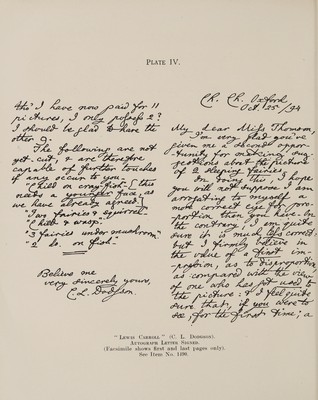 PLATE IV.
tho' I have now paid for 11
pictures, I only possess 2?
I should be glad to have the
other 9.
The following are not
yet cut, & are therefore
capable of further touches
if any occur to you.
"Child on cray-fish" [this
wants a younger face, as
we have already agreed.]
"Two fairies & squirrel"
"Child & wasp"
"3 fairies under mushroom"
"2 do. on fish"
Believe me
very sincerely yours,
C. L. Dodgson.
Ch. Ch. Oxford
Oct. 25/94
My dear Miss Thomson,
I'm very glad you've
given me a second oppor-
tunity for making sug-
gestions about the picture
of 2 sleeping fairies.
In doing this, I hope
you will not suppose I am
arrogating to myself a
more correct eye for pro-
portion than you have. On
the contrary, I am quite
sure it is much less correct:
but I firmly believe in
the value of a first im-
pression, as to disproportion,
as compared with the view
of one who has got used to
the picture. & I feel quite
sure that, if you were to
see, for the first time, a
"LEWIS CARROLL" (C. L. DODGSON).
AUTOGRAPH LETTER SIGNED.
(Facsimile shows first and last pages only).
See Item No. 1496.